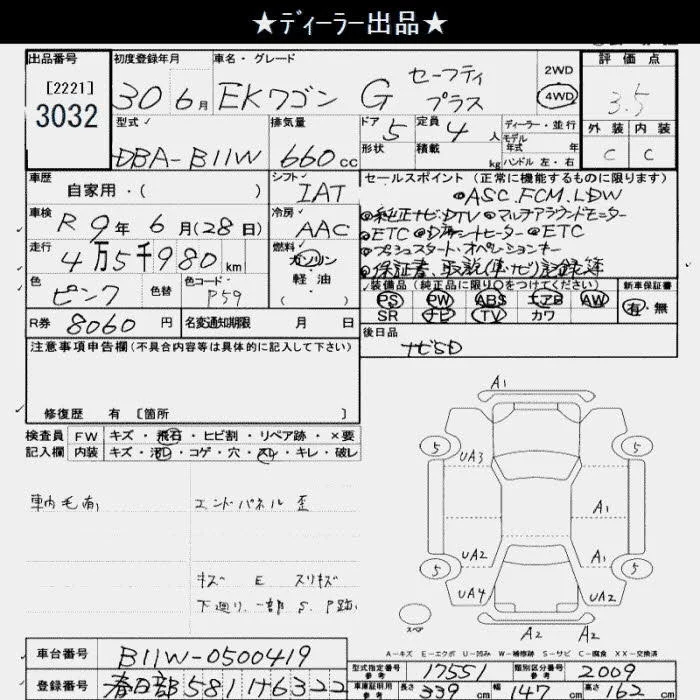 ★ディーラー出品★
出品番号 初度登録年月 車名・グレード 評価点
[2221]
3032
30 6月 EKワゴン G セーフティ プラス 2WD 4WD 3.5
型式 排気量 ドア 定員 ディーラー・並行 外装 内装
DBA-B11W 660cc 5 4人 モデル 年式 年 C C
形状 積載 kg ハンドル 左・右
車歴 シフト セールスポイント(正常に機能するものに限ります)
自家用・( ) IAT ◎ASC.FCM.LDW
車検 R9年 6月(28日) 冷房 AAC ◎純正ナビDTV ◎マルチアラウンドモニター
◎ETC ◎ ヒーター ◎ETC
走行 4万5千980km 燃料 ガソリン・軽油・( ) ◎プッシュスタート・オペレーションキー
◎保証書、取説(車・ナビ)記録簿
色 ピンク 色替 色コード P59 装備品(純正品に限り○をつけてください) 新車保証書
PS PW ABS エアB AW 有・無
R券 8060円 名変通知期限 月 日 SR ナビ TV カワ
注意事項申告欄(不具合内容等は具体的に記入して下さい) 後日品
ナビSD
修復歴 有 [箇所 ]
検査員 FW キズ・飛石・ヒビ割・リペア跡・×要
記入欄 内装 キズ・汚レ・コゲ・穴・スレ・キレ・破レ
車内毛有 エンドパネル 歪
キズ E スリキズ
下廻り、一部 S. P跡
A1
5 5
UA3
A1
UA2 A1
5 5
UA4 UA2
スペア A2 A2
A-キズ E-エクボ U-凹み W-補修跡 S-サビ C-腐食 XX-交換済
車台番号 B11W-0500419 型式指定番号 参考 17551 類別区分番号 参考 2009
登録番号 春日部581 6322 車庫証明用 参考 長さ 339cm 幅 147cm 高さ 162cm